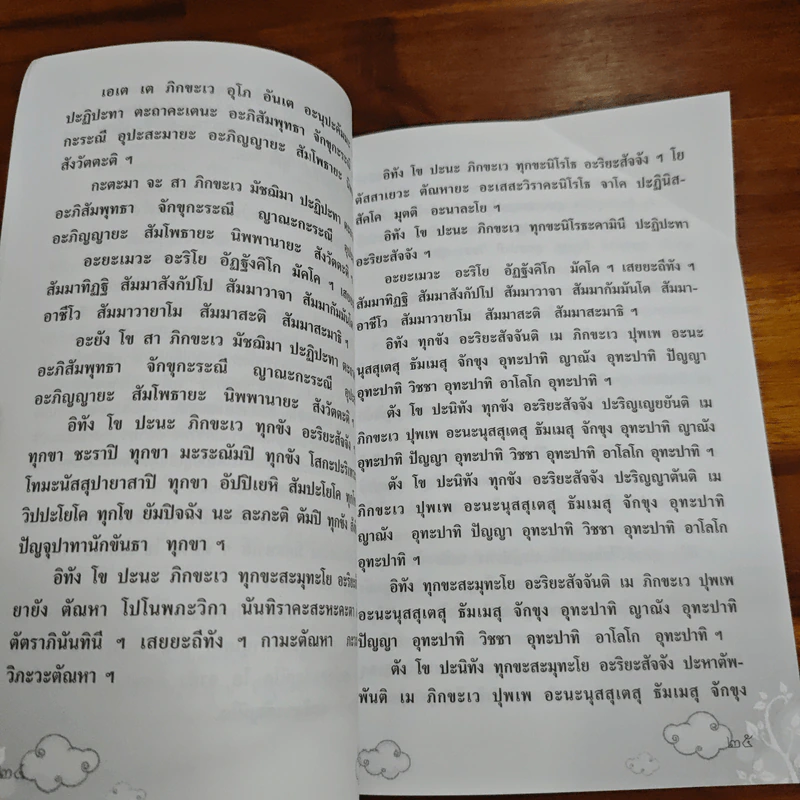 เอเต เต ภิกขะเว อุโภ อันเต อะนุปะคัมมะ
ปะฏิปะทา ตะถาคะเตนะ อะภิสัมพุทธา จักขุกะระณี
กะระณี อุปะสะมายะ อะภิญญายะ สัมโพธายะ
สังวัตตะติ ฯ
กะตะมา จะ สา ภิกขะเว มัชฌิมา ปะฏิปะทา
อะภิสัมพุทธา จักขุกะระณี ญาณะกะระณี
อะภิญญายะ สัมโพธายะ นิพพานายะ สังวัตตะติ ฯ
อะยะเมวะ อะริโย อัฏฐังคิโก มัคโค ฯ เสยยะ
สัมมาทิฏฐิ สัมมาสังกัปโป สัมมาวาจา สัมมากัมมันโต
อาชีโว สัมมาวายาโม สัมมาสะติ สัมมาสะมาธิ ฯ
อะยัง โข สา ภิกขะเว มัชฌิมา ปะฏิปะทา
อะภิสัมพุทธา จักขุกะระณี ญาณะกะระณี
อะภิญญายะ สัมโพธายะ นิพพานายะ สังวัตตะติ ฯ
อิทัง โข ปะนะ ภิกขะเว ทุกขัง อะริยะสัจจัง
ทุกขา ชะราปิ ทุกขา มะระณัมปิ ทุกขัง โสกะปะริ
โทมะนัสสุปายาสาปิ ทุกขา อัปปิเยหิ สัมปะโยโค
วิปปะโยโค ทุกโข ยัมปิจฉัง นะ ละภะติ ตัมปิ ทุกขัง
ปัญจุปาทานักขันธา ทุกขา ฯ
อิทัง โข ปะนะ ภิกขะเว ทุกขะสะมุทะโย อะริยะ
ยายัง ตัณหา โปโนพภะวิกา นันทิราคะสะหะคะตา
ตัตราภินันทินี ฯ เสยยะถีทัง ฯ กามะตัณหา ภะวะ
วิภะวะตัณหา ฯ
๒๔
อิทัง โข ปะนะ ภิกขะเว ทุกขะนิโรโธ อะริยะสัจจัง ฯ โย
ตัสสาเยวะ ตัณหายะ อะเสสะวิราคะนิโรโธ จาโค ปะฏินิส-
สัคโค มุตติ อะนาละโย ฯ
อิทัง โข ปะนะ ภิกขะเว ทุกขะนิโรธะคามินี ปะฏิปะทา
อะริยะสัจจัง ฯ
อะยะเมวะ อะริโย อัฏฐังคิโก มัคโค ฯ เสยยะถีทัง ฯ
สัมมาทิฏฐิ สัมมาสังกัปโป สัมมาวาจา สัมมากัมมันโต สัมมา-
อาชีโว สัมมาวายาโม สัมมาสะติ สัมมาสะมาธิ ฯ
อิทัง ทุกขัง อะริยะสัจจันติ เม ภิกขะเว ปุพเพ อะนะ
นุสสุเตสุ ธัมเมสุ จักขุง อุทะปาทิ ญาณัง อุทะปาทิ ปัญญา
อุทะปาทิ วิชชา อุทะปาทิ อาโลโก อุทะปาทิ ฯ
ตัง โข ปะนิทัง ทุกขัง อะริยะสัจจัง ปะริญเญยยันติ เม
ภิกขะเว ปุพเพ อะนะนุสสุเตสุ ธัมเมสุ จักขุง อุทะปาทิ ญาณัง
อุทะปาทิ ปัญญา อุทะปาทิ วิชชา อุทะปาทิ อาโลโก อุทะปาทิ ฯ
ตัง โข ปะนิทัง ทุกขัง อะริยะสัจจัง ปะริญญาตันติ เม
ภิกขะเว ปุพเพ อะนะนุสสุเตสุ ธัมเมสุ จักขุง อุทะปาทิ
ญาณัง อุทะปาทิ ปัญญา อุทะปาทิ วิชชา อุทะปาทิ อาโลโก
อุทะปาทิ ฯ
อิทัง ทุกขะสะมุทะโย อะริยะสัจจันติ เม ภิกขะเว ปุพเพ
อะนะนุสสุเตสุ ธัมเมสุ จักขุง อุทะปาทิ ญาณัง อุทะปาทิ
ปัญญา อุทะปาทิ วิชชา อุทะปาทิ อาโลโก อุทะปาทิ ฯ
ตัง โข ปะนิทัง ทุกขะสะมุทะโย อะริยะสัจจัง ปะหาตัพ-
พันติ เม ภิกขะเว ปุพเพ อะนะนุสสุเตสุ ธัมเมสุ จักขุง
๒๕